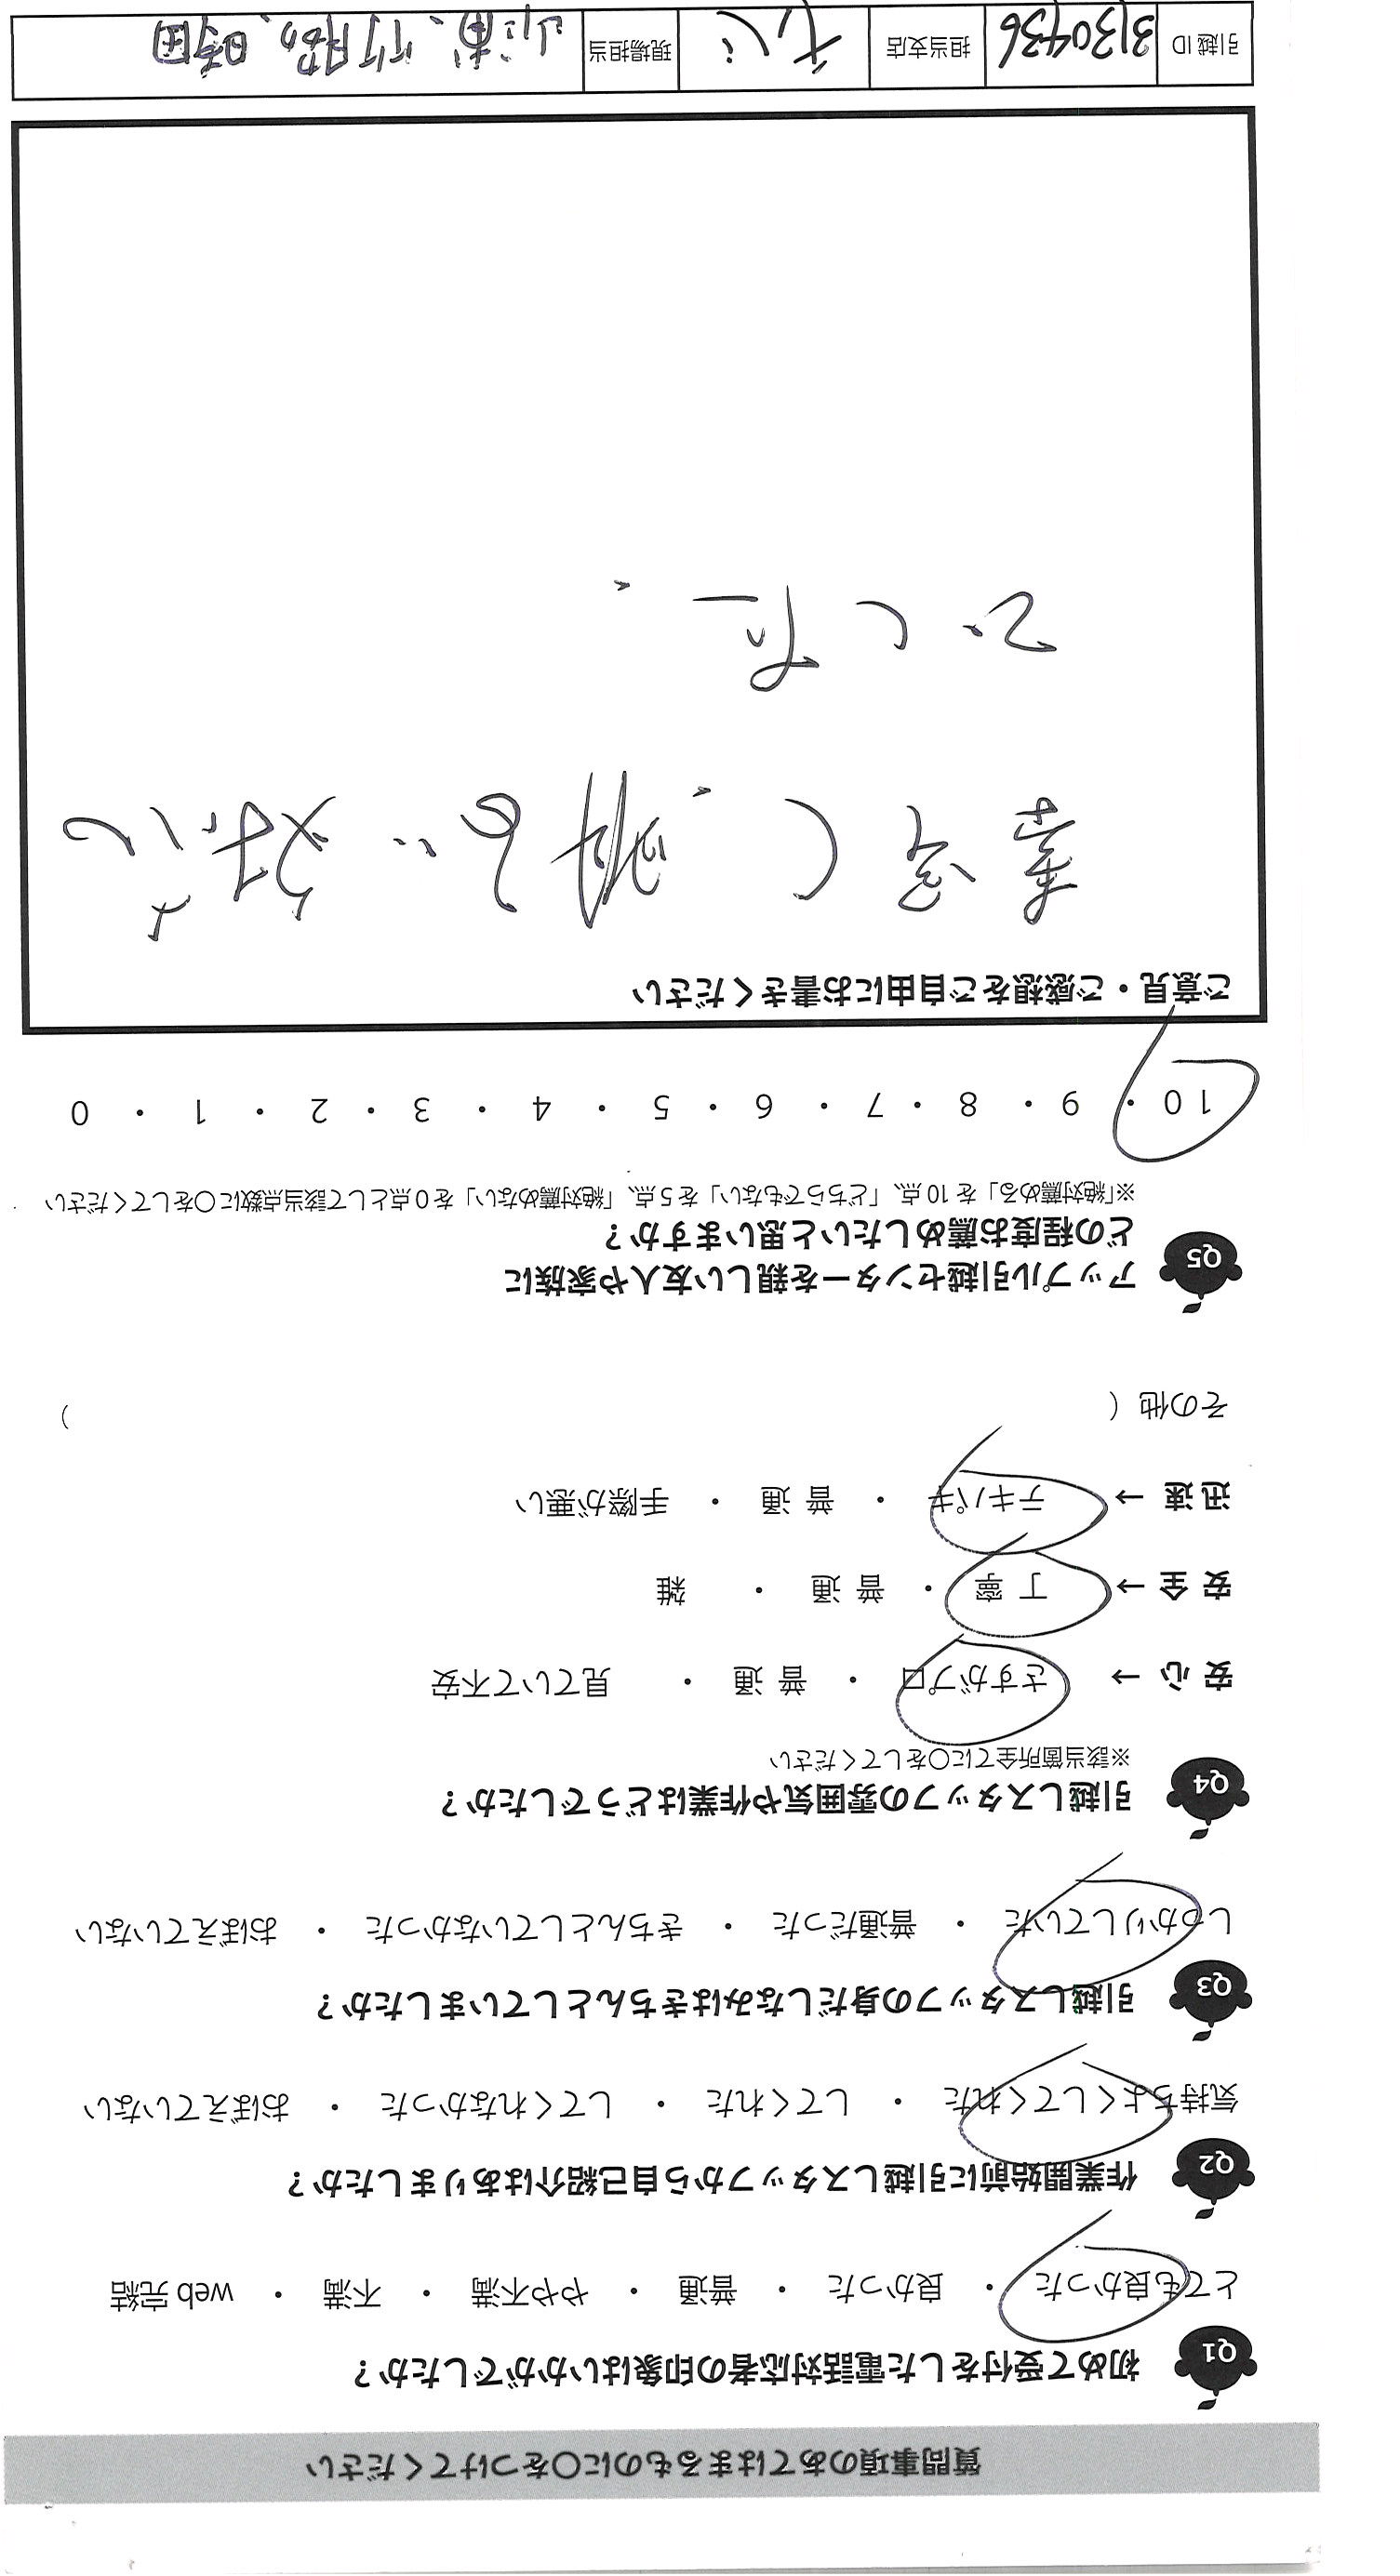 質問事項のあてはまるものに〇をつけてください
Q1 初めて受付をした電話対応者の印象はいかがでしたか？
とても良かった ・ 良かった ・ 普通 ・ やや不満 ・ 不満 ・ web 完結
Q2 作業開始前に引越しスタッフから自己紹介はありましたか？
気持ちよくしてくれた ・ してくれた ・ してくれなかった ・ おぼえていない
Q3 引越しスタッフの身だしなみはきちんとしていましたか？
しっかりしていた ・ 普通だった ・ きちんとしていなかった ・ おぼえていない
Q4 引越しスタッフの雰囲気や作業はどうでしたか？
※該当箇所全てに〇をしてください
安 心 → さすがプロ ・ 普 通 ・ 見ていて不安
安 全 → 丁 寧 ・ 普 通 ・ 雑
迅 速 → テキパキ ・ 普 通 ・ 手際が悪い
その他 （ ）
Q5 アップル引越センターを親しい友人や家族に
どの程度お薦めしたいと思いますか？
※「絶対薦める」を 10 点、「どちらでもない」を 5 点、「絶対薦めない」を 0 点として該当点数に〇をしてください
10 ・ 9 ・ 8 ・ 7 ・ 6 ・ 5 ・ 4 ・ 3 ・ 2 ・ 1 ・ 0
ご意見・ご感想をご自由にお書きください
でした。
引越 ID 3130436 担当支店 現場担当